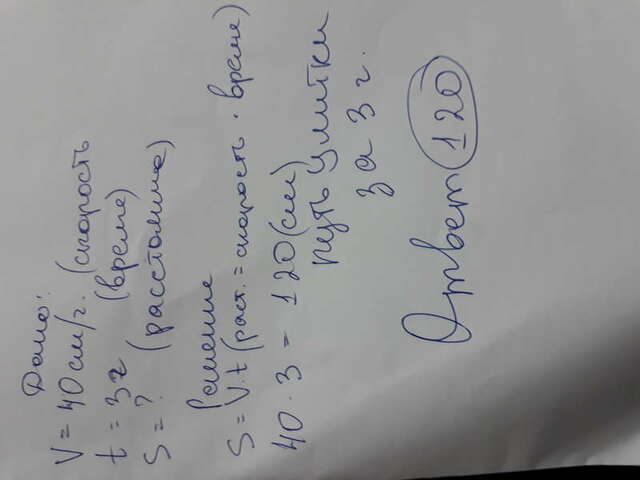 Дано:
V = 40 см/ч. (скорость
t = 3ч (время)
S = ? (расстояние)
Решение
S = V·t (раст. = скорость · время)
40 · 3 = 120 (см)
путь улитки
за 3 ч.
Ответ 120